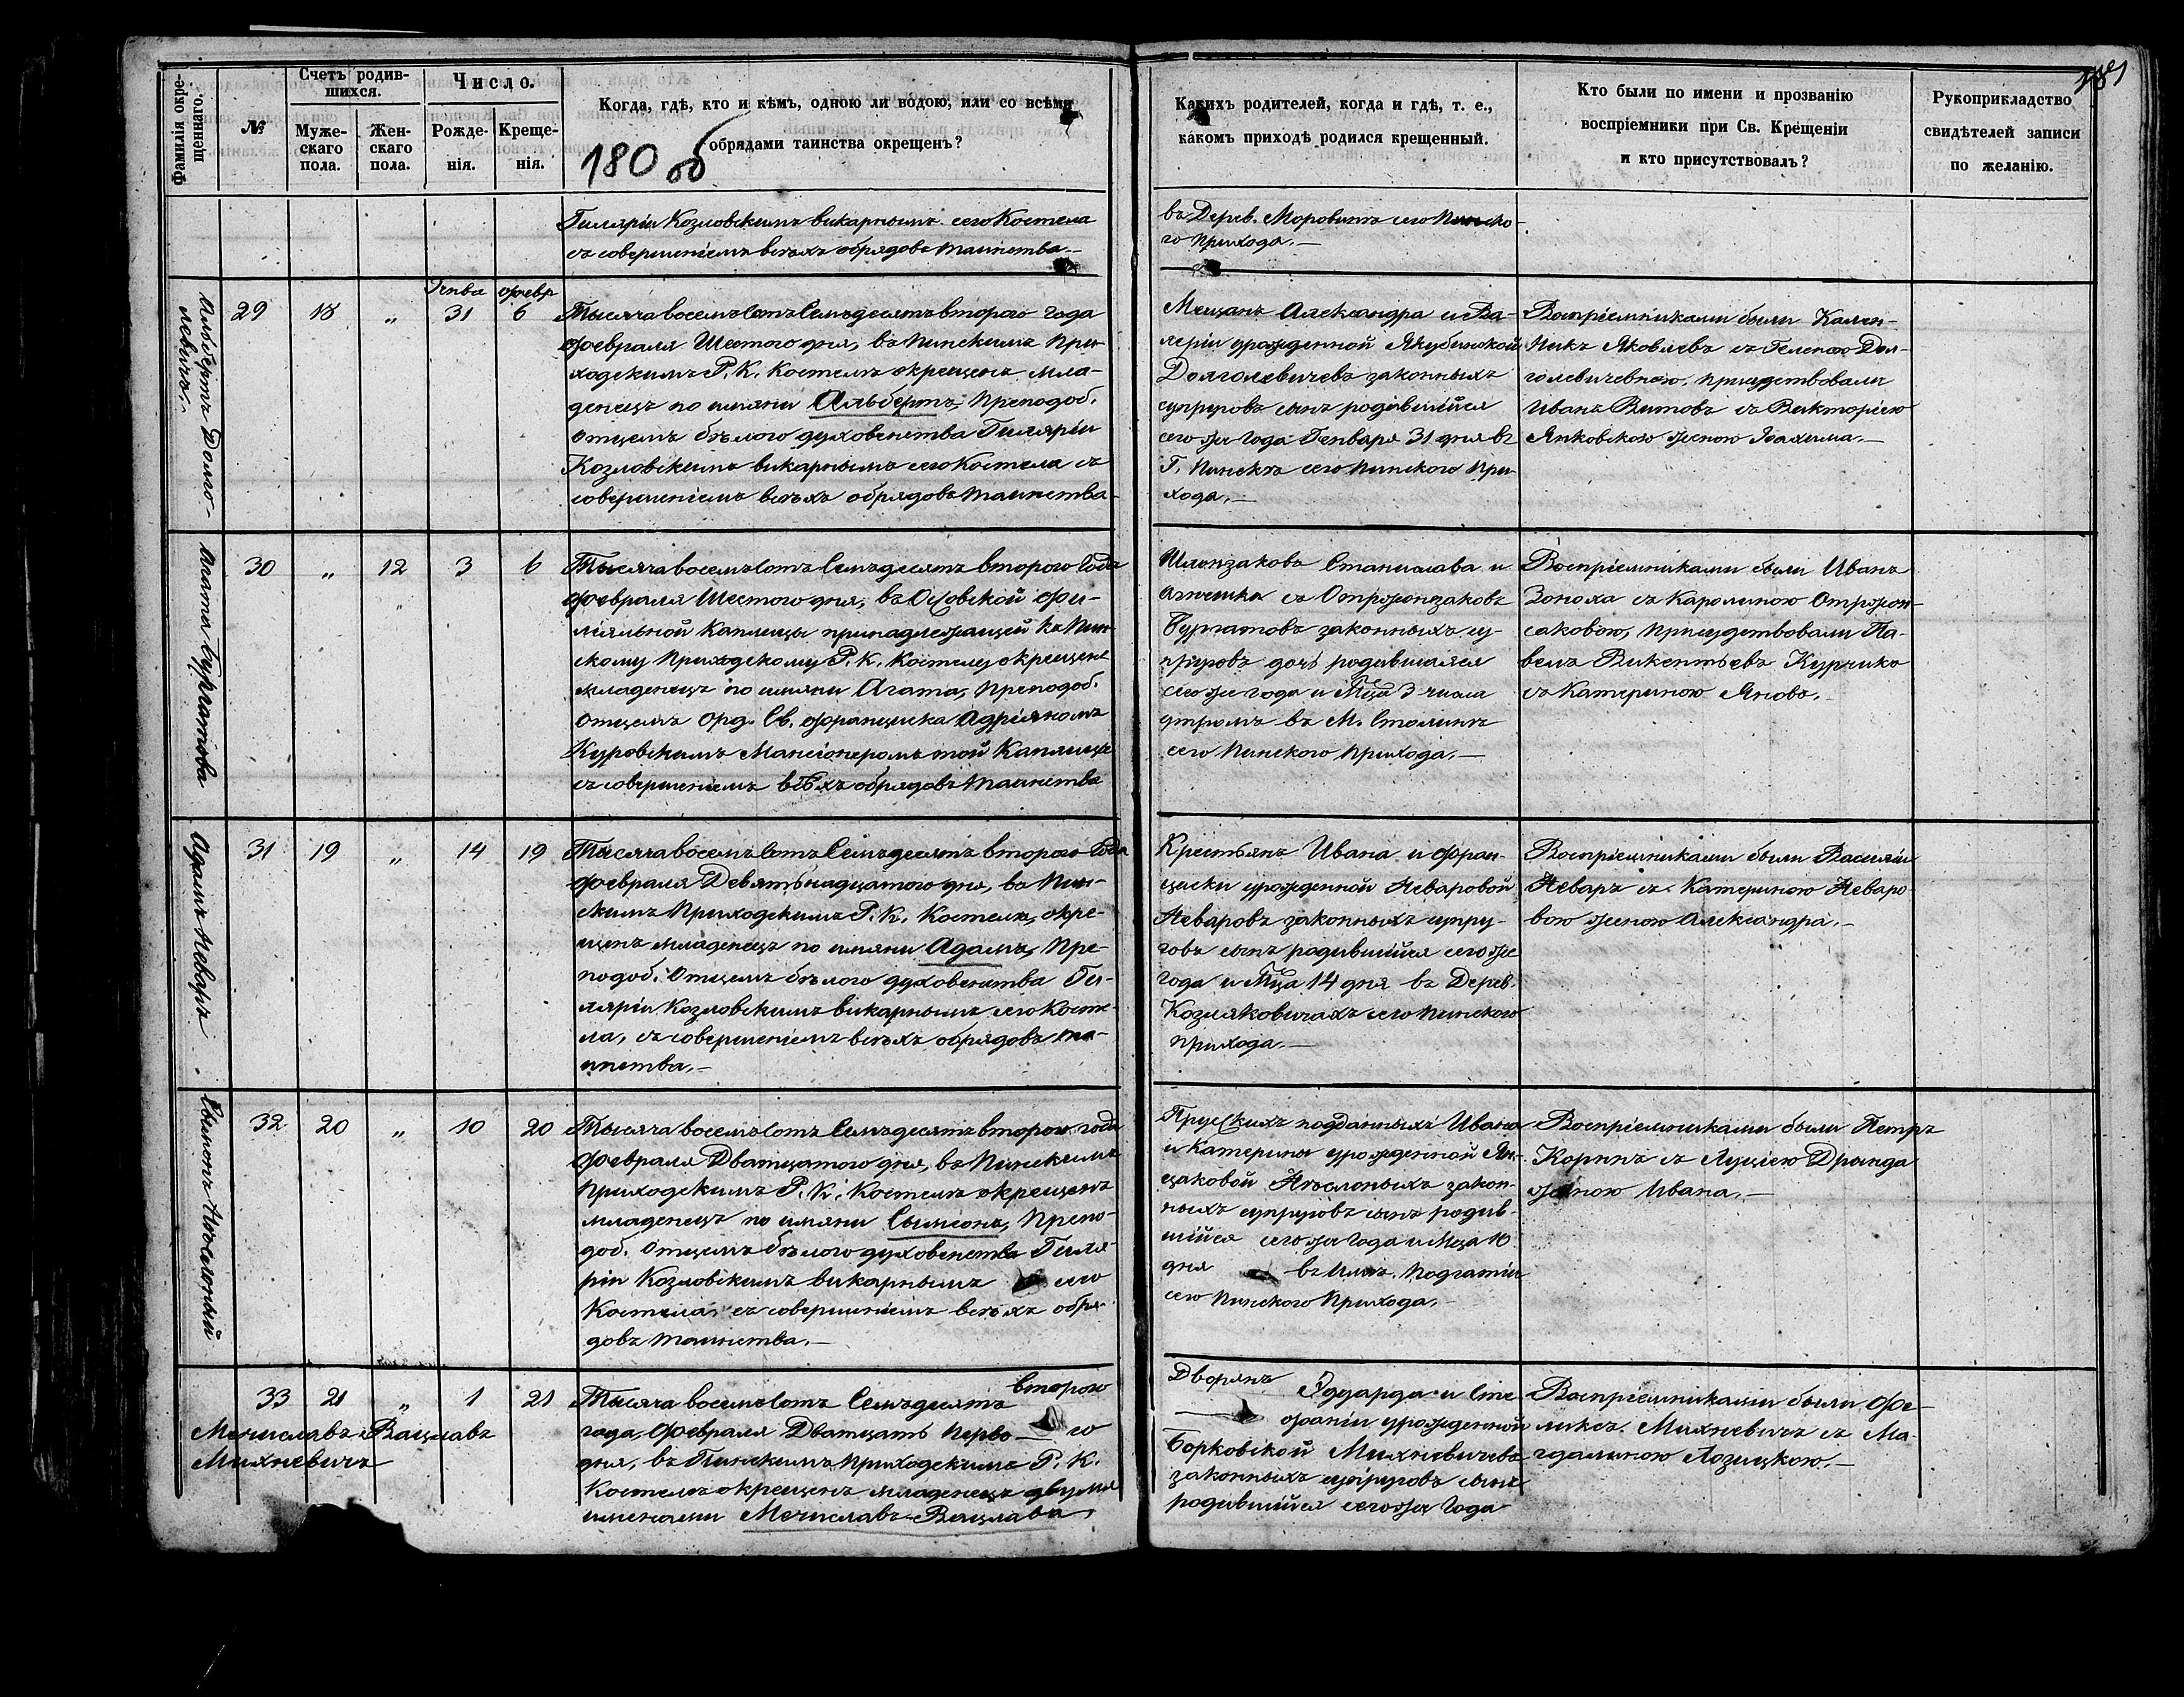 Фамилія окре-
щеннаго.
№
Счетъ родив-
шихся.
Муже-
скаго
пола.
Жен-
скаго
пола.
Число.
Рожде-
нія.
Креще-
нія.
Когда, гдѣ, кто и кѣмъ, одною ли водою, или со всѣми
обрядами таинства окрещенъ?
180 об
Какихъ родителей, когда и гдѣ, т. е.,
какомъ приходѣ родился крещенный.
Кто были по имени и прозванію
воспріемники при Св. Крещеніи
и кто присутствовалъ?
Рукоприкладство
свидѣтелей записи
по желанію.
181
Гиляріи Козловскимъ викарнымъ сего Костела
съ совершеніемъ всѣхъ обрядовъ таинства.—
въ Дерев. Моровитъ сего Пинско-
го прихода.—
Альбертъ Долго-
левичъ.
29
18
„
Генва
31
февр
6
Тысяча восемьсотъ семьдесятъ второго года
февраля Шестого дня, въ Пинскимъ При-
ходскимъ Р. К. Костелѣ окрещенъ мла-
денецъ по имяни Альбертъ, Преподоб.
Отцемъ бѣлого духовенства Гиляріи
Козловскимъ викарнымъ сего Костела съ
совершеніемъ всѣхъ обрядовъ таинства
Мещанъ Александра и Ва-
леріи урожденной Якубинской
Долголевичевъ законныхъ
супруговъ сынъ родившійся
сего же года Генваря 31 дня въ
Г. Пинскѣ сего Пинского При-
хода.—
Воспріемниками были
Яковлевъ съ Геленою Дол-
голевичевною, присудствовали
Иванъ Витовъ съ Викторіею
Янковскою женою Іоахима.—
Агата Бургатова
30
„
12
3
6
Тысяча восемьсотъ семьдесятъ второго года
февраля Шестого дня, въ Осовской фи-
ліяльной Каплицы принадлежащей къ Пин-
скому Приходскому Р. К. Костелу окрещенъ
младенецъ по имяни Агата, Преподоб.
Отцемъ Орд. Св. Франциска Адріяномъ
Куровскимъ Мансіонеромъ той Каплицы
съ совершеніемъ всѣхъ обрядовъ таинства
Шлензаковъ Станислава и
Агнешки съ Отрженсаковъ
Бургатовъ законныхъ су-
пруговъ дочь родившаяся
сего же года и Мца 3 числа
утромъ въ М. Столинѣ
сего Пинского прихода.—
Воспріемниками были Иванъ
Зоноха съ Каролиною Отржен-
саковою, присудствовали Па-
велъ Викентьевъ Курчико
съ Катериною Янова.
Адамъ Неваръ
31
19
„
14
19
Тысяча восемьсотъ семьдесятъ второго года
февраля Девятьнадцатого дня, въ Пин-
скимъ Приходскимъ Р. К. Костелѣ, окре-
щенъ младенецъ по имяни Адамъ, Пре-
подоб. Отцемъ бѣлого духовенства Ги-
ляріи Козловскимъ викарнымъ сего Косте-
ла, съ совершеніемъ всѣхъ обрядовъ та-
инства.—
Крестьянъ Ивана и Фран-
циски урожденной Неваровой
Неваровъ законныхъ супру-
говъ сынъ родившійся сего же
года и Мца 14 дня въ Дерев.
Козляковичахъ сего Пинского
прихода.—
Воспріемниками были Василій
Неваръ съ Катериною Неваро-
вою женою Александра.—
32
20
„
10
20
Тысяча восемьсотъ семьдесятъ второго года
февраля Дватцатого дня, въ Пинскимъ
Приходскимъ Р. К. Костелѣ окрещенъ
младенецъ по имяни Сымеонъ, Препо-
доб. Отцемъ бѣлого духовенства Гиля-
ріи Козловскимъ викарнымъ сего
Костела, съ совершеніемъ всѣхъ обря-
довъ таинства.—
Прусскихъ подданныхъ Ивана
и Катерины урожденной Ян-
цаковой закон-
ныхъ супруговъ сынъ родив-
шійся сего же года и Мца 10
дня въ
сего Пинского Прихода.
Воспріемниками были Петръ
Коринъ съ Луціею Дрында
женою Ивана.—
33
21
„
1
21
Мечиславъ-Вацлавъ
Михневичъ
Тысяча восемьсотъ семьдесятъ второго
года, февраля Дватцать перво-го
дня, въ Пинскимъ приходскимъ Р. К.
Костелѣ окрещенъ младенецъ двумя
именами Мечиславъ-Вацлавъ,
Дворянъ Эдуарда и Сте-
фаніи урожденной
Борковской Михневичевъ
законныхъ супруговъ сынъ
родившійся сего же года
Воспріемниками были Фе-
ликсъ Михневичъ съ Ма-
гдаленою Лозицкою.—